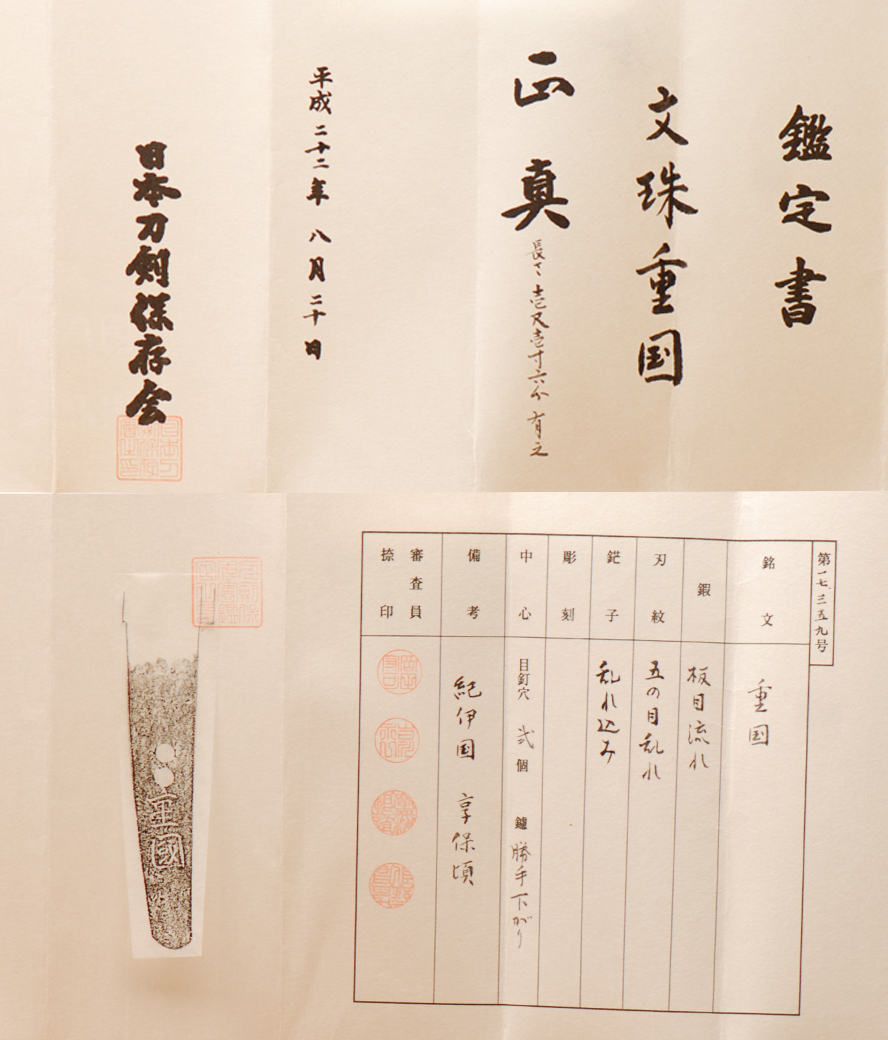 鑑定書
文珠重国
正真
長さ壱尺壱寸六分有之
平成二十二年八月二十日
日本刀剣保存会
第一七三五九号
銘文 重国
鍜 板目流れ
刃紋 五の目乱れ
鋩子 乱れ込み
彫刻
中心 目釘穴 弐個 鑢 勝手下がり
備考 紀伊国 享保頃
審査員
捺印
重國